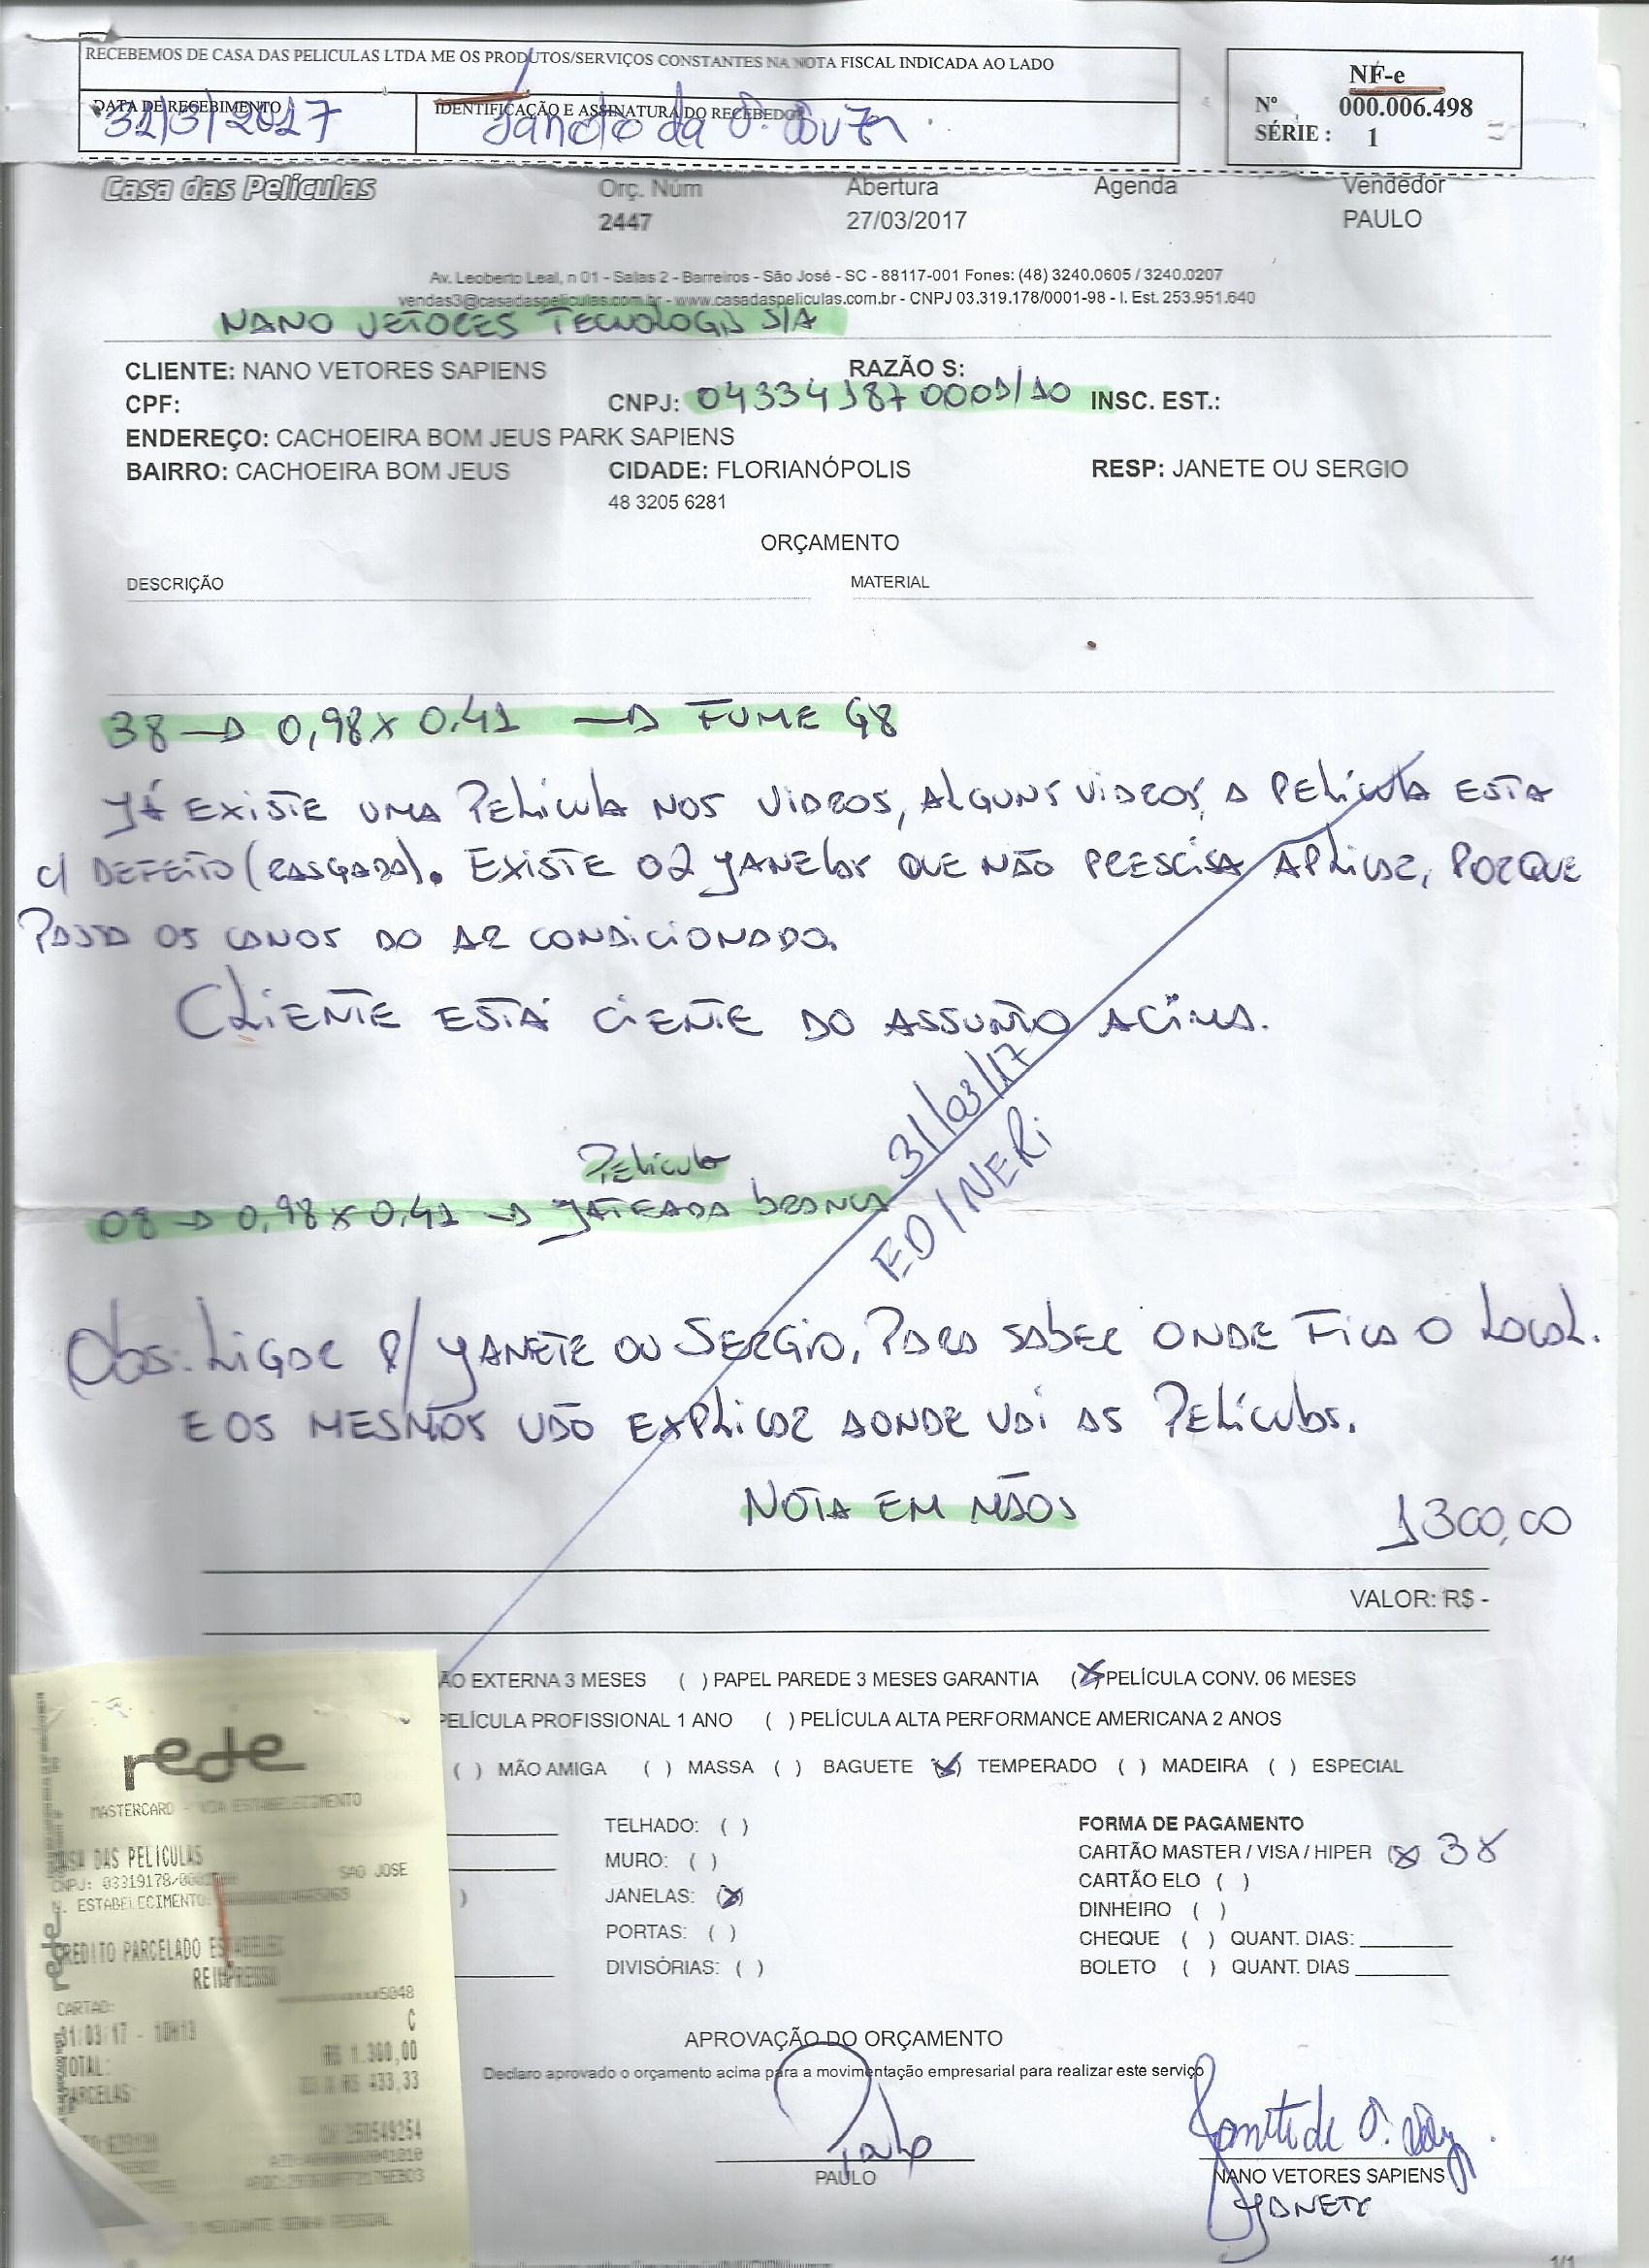 RECEBEMOS DE CASA DAS PELICULAS LTDA ME OS PRODUTOS/SERVIÇOS CONSTANTES NA NOTA FISCAL INDICADA AO LADO
NF-e
Nº 000.006.498
SÉRIE : 1
DATA DE RECEBIMENTO
31/3/2017
IDENTIFICAÇÃO E ASSINATURA DO RECEBEDOR
Casa das Películas
Orç. Núm Abertura Agenda Vendedor
2447 27/03/2017 PAULO
Av. Leoberto Leal, n 01 - Salas 2 - Barreiros - São José - SC - 88117-001 Fones: (48) 3240.0605 / 3240.0207
vendas3@casadaspeliculas.com.br - www.casadaspeliculas.com.br - CNPJ 03.319.178/0001-98 - I. Est. 253.951.640
NANO VETORES TECNOLOGIS S/A
CLIENTE: NANO VETORES SAPIENS RAZÃO S:
CPF: CNPJ: 04334187 0001/10 INSC. EST.:
ENDEREÇO: CACHOEIRA BOM JEUS PARK SAPIENS
BAIRRO: CACHOEIRA BOM JEUS CIDADE: FLORIANÓPOLIS RESP: JANETE OU SERGIO
48 3205 6281
ORÇAMENTO
DESCRIÇÃO MATERIAL
38 → 0,98 x 0,41 → FUME G8
JÁ EXISTE UMA PELÍCULA NOS VIDROS, ALGUNS VIDROS, A PELÍCULA ESTA
C/ DEFEITO (RASGADA). EXISTE 02 JANELAS QUE NÃO PRESCISA APLICAR, PORQUE
PASSA OS CANOS DO AR CONDICIONADO.
CLIENTE ESTÁ CIENTE DO ASSUNTO ACIMA.
31/03/17
EDINERI
PELÍCULA
08 → 0,98 x 0,41 → JATEADA BRANCA
Obs: LIGAR P/ JANETE OU SERGIO, PARA SABER ONDE FICA O LOCAL.
E OS MESMOS VÃO EXPLICAR AONDE VAI AS PELÍCULAS.
NOTA EM MÃOS
1300,00
VALOR: R$ -
ÃO EXTERNA 3 MESES ( ) PAPEL PAREDE 3 MESES GARANTIA (X) PELÍCULA CONV. 06 MESES
PELÍCULA PROFISSIONAL 1 ANO ( ) PELÍCULA ALTA PERFORMANCE AMERICANA 2 ANOS
( ) MÃO AMIGA ( ) MASSA ( ) BAGUETE (X) TEMPERADO ( ) MADEIRA ( ) ESPECIAL
TELHADO: ( )
MURO: ( )
JANELAS: (X)
PORTAS: ( )
DIVISÓRIAS: ( )
FORMA DE PAGAMENTO
CARTÃO MASTER / VISA / HIPER (X) 3X
CARTÃO ELO ( )
DINHEIRO ( )
CHEQUE ( ) QUANT. DIAS:
BOLETO ( ) QUANT. DIAS
rede
MASTERCARD - VIA ESTABELECIMENTO
CASA DAS PELICULAS
CNPJ: 03319178/000 SAO JOSE
N. ESTABELECIMENTO:
CREDITO PARCELADO
REIMPRESSO
5048
CARTAO: C
31/03/17 - 10H13
TOTAL: R$ 1.300,00
PARCELAS: R$ 433,33
MEDIANTE SENHA PESSOAL
APROVAÇÃO DO ORÇAMENTO
Declaro aprovado o orçamento acima para a movimentação empresarial para realizar este serviço
Paulo
PAULO
NANO VETORES SAPIENS
JANETE
1/1